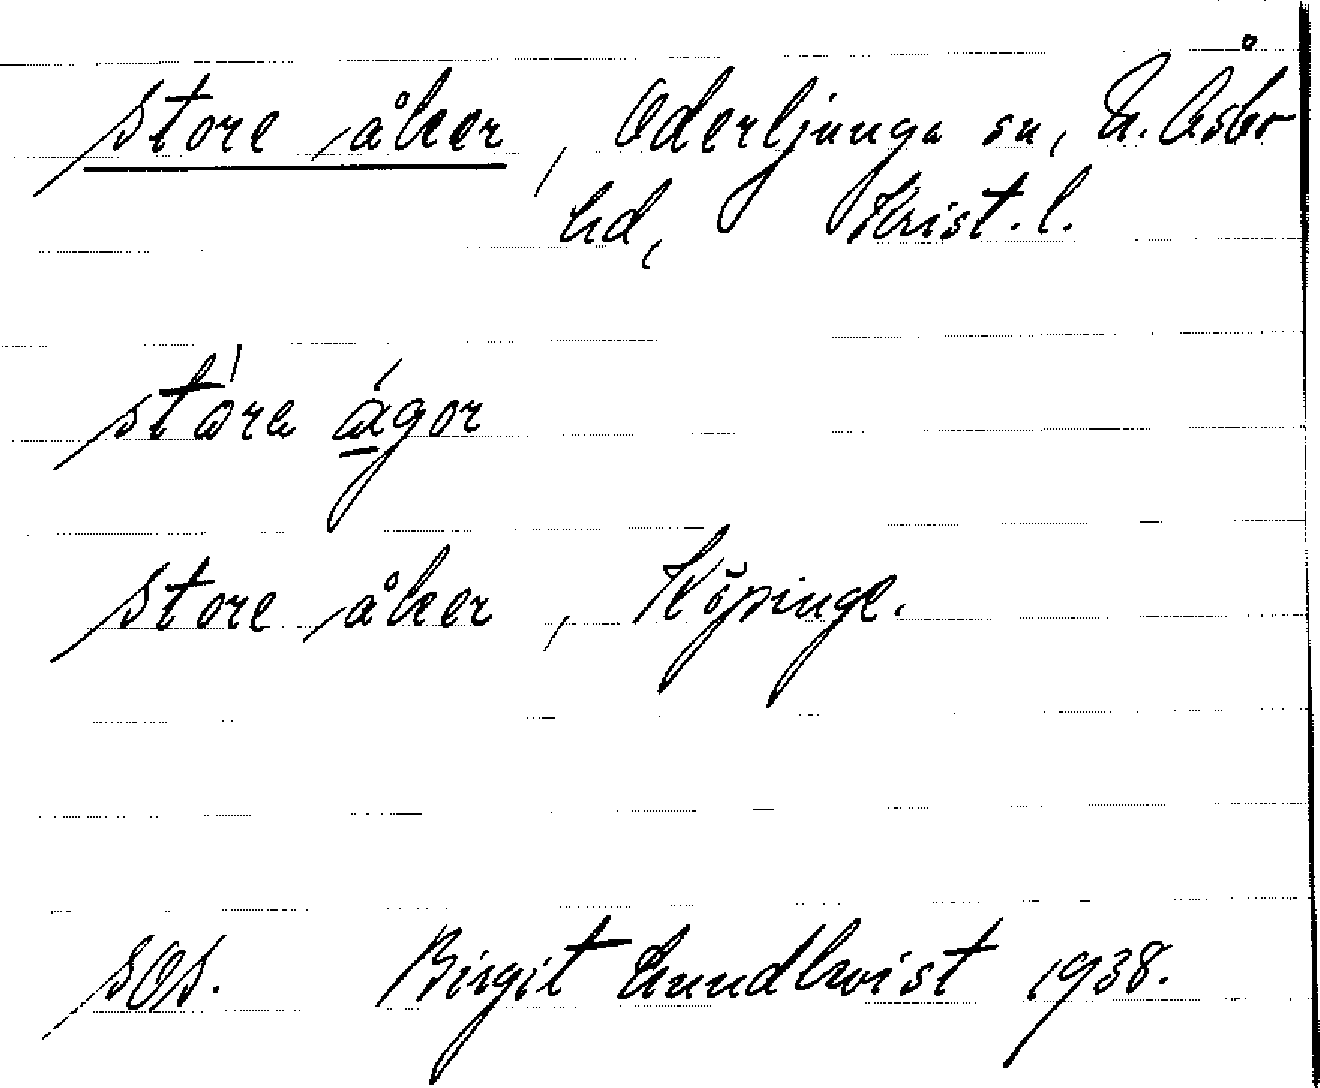 store åker, Oderljunga sn, N. Åsbo
hd, Krist. l.
stora ågor
store åker, Köpinge.
SOS. Birgit Lundkvist 1938.